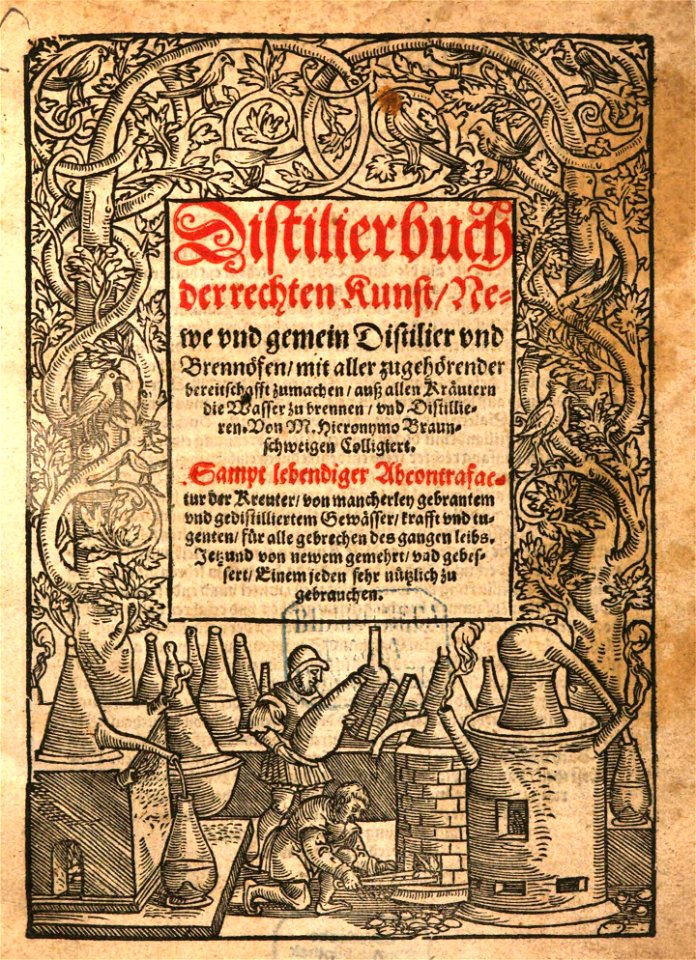 Distilierbuch
der rechten Kunst/Ne-
we vnd gemein Distilier vnd
Brennöfen/mit aller zugehörender
bereitschafft zumachen/auß allen Kräutern
die Wasser zu brennen/vnd Distillie-
ren. Von M. Hieronymo Braun-
schweigen Colligiert.
Sampt lebendiger Abcontrafac-
tur der Kreuter/von mancherley gebrantem
vnd gedistilliertem Gewässer/krafft vnd tu-
genten/für alle gebrechen des gangen leibs.
Jetzund von newem gemehrt/vnd gebes-
sert/Einem jeden sehr nützlich zu
gebrauchen.